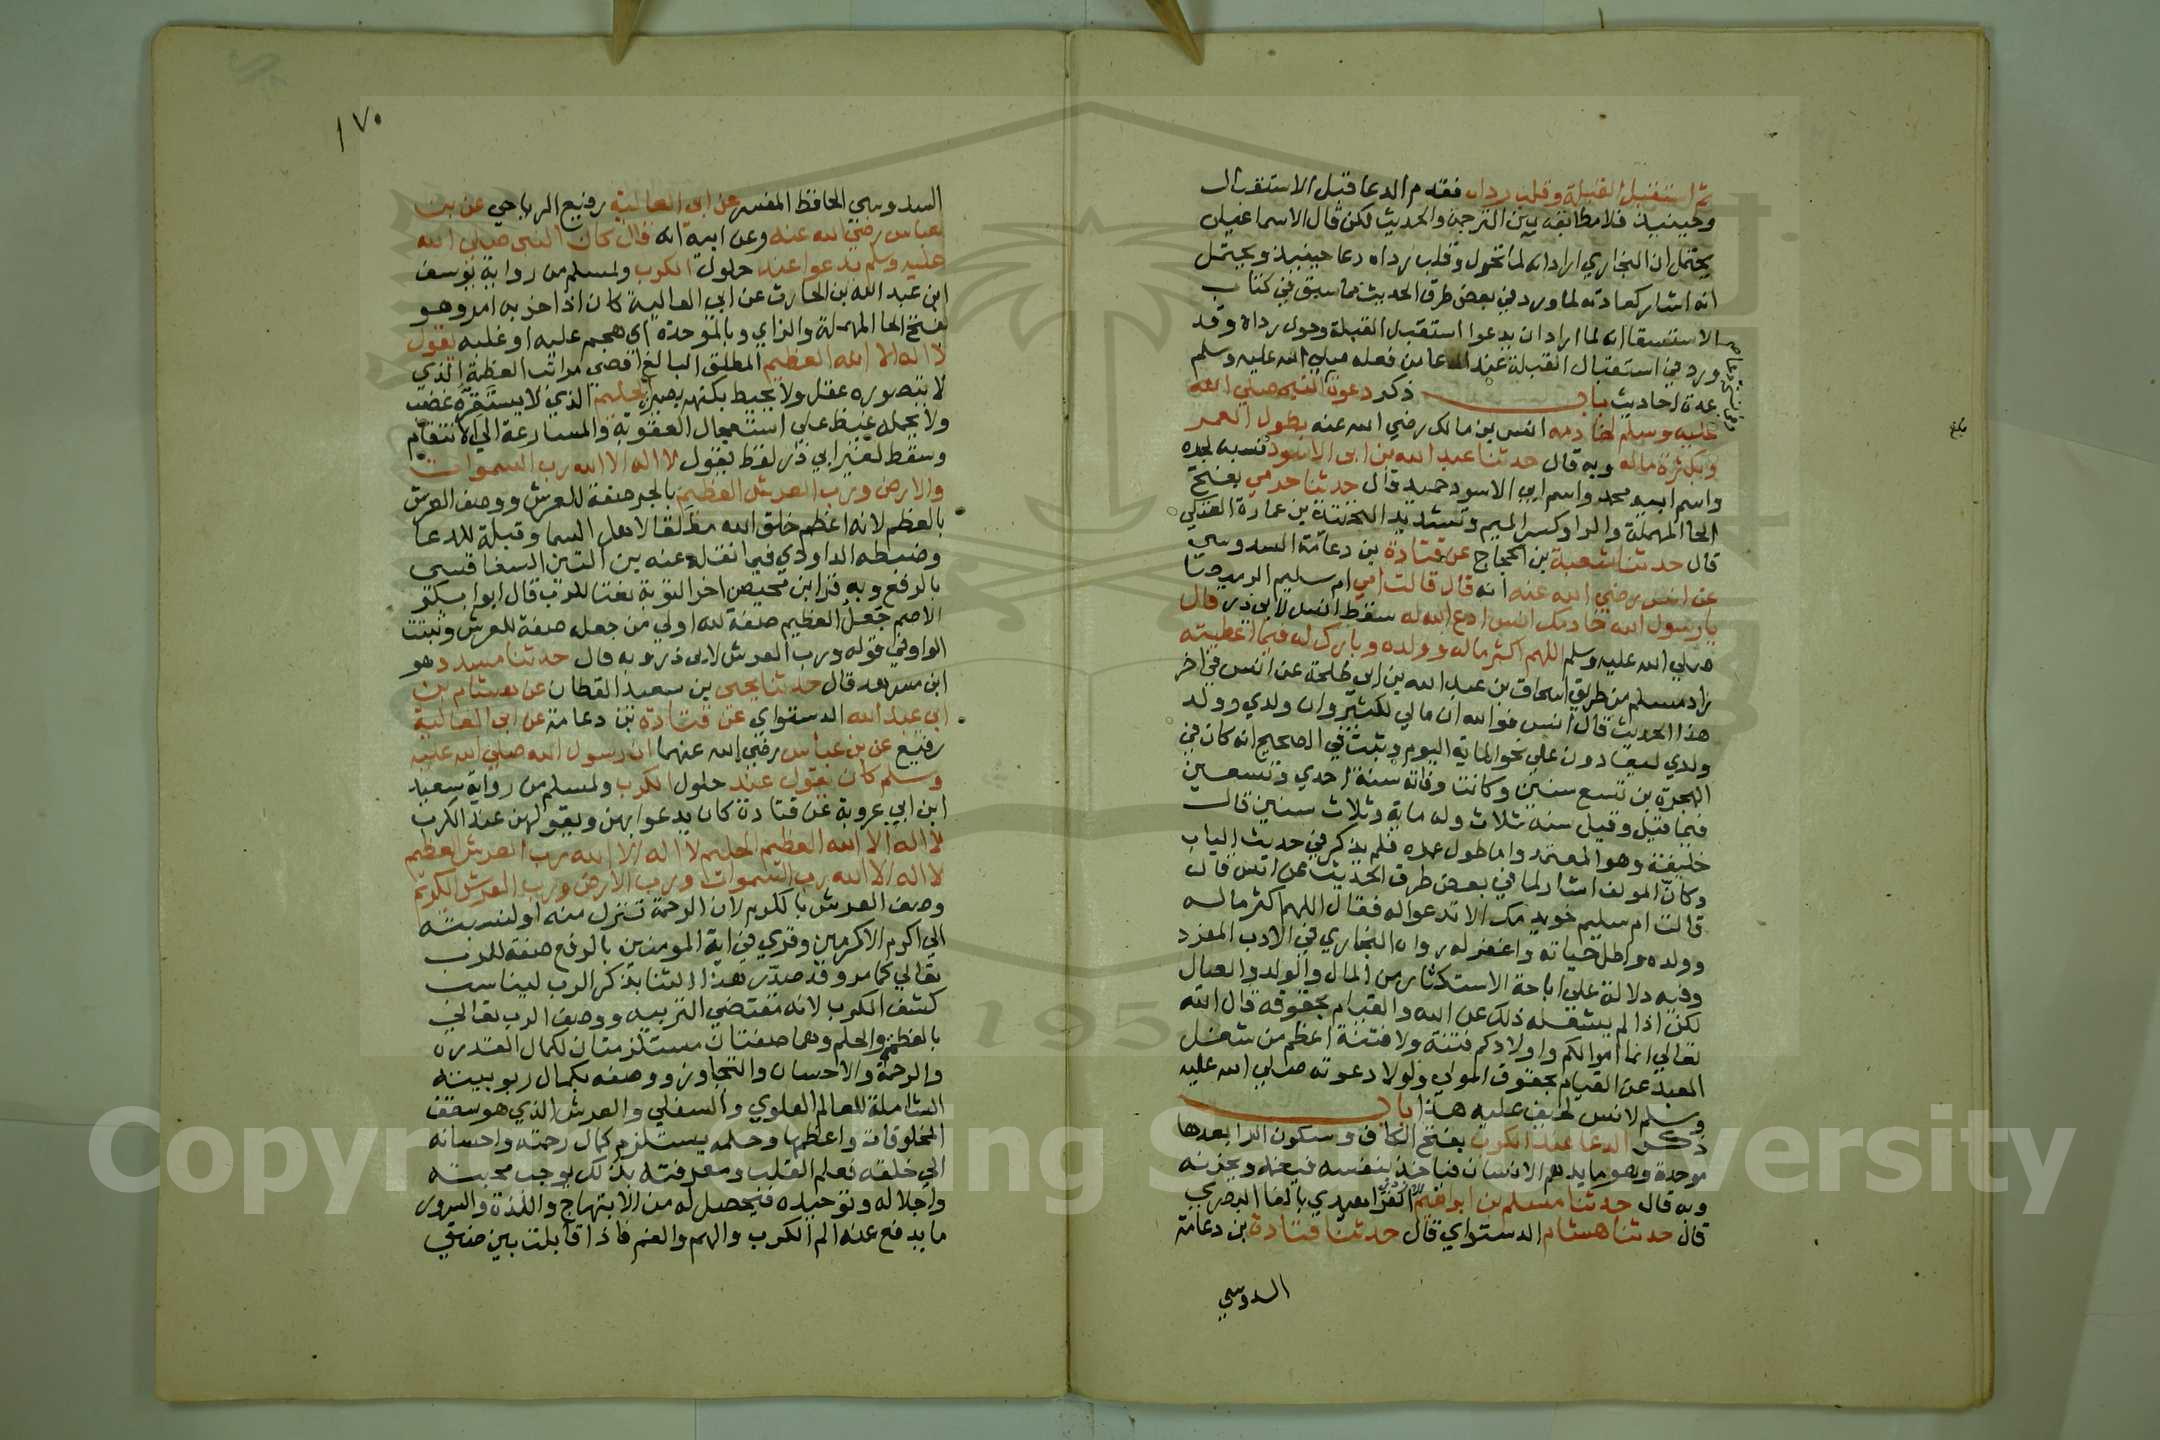 ثم استقبل القبلة وقلب رداه فقدم الدعا قبل الاستقبال
وحينيذ فلا مطابقه بين الترجمة والحديث لكن قال الاسماعيلي
يحتمل ان البخاري اراد انه لما تحول وقلب رداه دعا حينيذ ويحتمل
انه اشار كعادته لما ورد في بعض طرق الحديث مما سبق في كتاب
الاستسقا انه لما اراد ان يدعوا استقبل القبلة وحول رداه وقد
ورد في استقبال القبلة عند الدعا من فعله صلي الله عليه وسلم
عدة احاديث باب ذكر دعوة النبي صلي الله
عليه وسلم لخادمه انس بن مالك رضي الله عنه بطول العمر
وبكثرة ماله وبه قال حدثنا عبد الله بن ابي الاسود نسبه لجده
واسم ابيه محمد واسم ابي الاسود حميد قال حدثنا حرمي بفتح
الحا المهملة والرا وكسر الميم وتشديد التحتية بن عمارة العتكي
قال حدثنا شعبة بن الحجاج عن قتادة بن دعامة السدوسي
عن انس رضي الله عنه انه قال قالت امي ام سليم الرميصا
يا رسول الله خادمك انس ادع الله له سقط انس لابي ذر قال
صلي الله عليه وسلم اللهم اكثر ماله وولده وبارك له فيما اعطيته
زاد مسلم من طريق اسحاق بن عبد الله بن ابي طلحة عن انس في اخر
هذا الحديث قال انس فوالله ان مالي لكثير وان ولدي وولد
ولدي ليعادون علي نحو الماية اليوم وثبت في الصحيح انه كان في
الهجرة بن تسع سنين وكانت وفاته سنة احدي وتسعين
فيما قيل وقيل سنه ثلاث وله ماية وثلاث سنين قال
خليفة وهو المعتمد واما طول عمره فلم يذكر في حديث الباب
وكان المولف اشار لما في بعض طرق الحديث عن انس قال
قالت ام سليم خويدمك الا تدعوا له فقال اللهم اكثر ماله
وولده واطل حياته واغفر له رواه البخاري في الادب المفرد
وفيه دلالة علي اباحة الاستكثار من المال والولد والعيال
لكن اذا لم يشغله ذلك عن الله والقيام بحقوقه قال الله
تعالي انما اموالكم واولادكم فتنة ولا فتنة اعظم من شغل
العبد عن القيام بحقوق المولي ولولا دعوته صلي الله عليه
وسلم لانس لخيف عليه هذا باب
ذكر الدعا عند الكرب بفتح الكاف وسكون الرا بعدها
موحدة وهو ما يدهم الانسان فياخذ بنفسه فيغمه ويحزنه
وبه قال حدثنا مسلم بن ابراهيم الفراهيدي بالفا البصري
قال حدثنا هشام الدستواي قال حدثنا قتادة بن دعامة
السدوسي
١٧٠
السدوسي الحافظ المفسر عن ابي العالية رفيع الرياحي عن بن
عباس رضي الله عنه وعن ابيه انه قال كان النبي صلي الله
عليه وسلم يدعوا عند حلول الكرب ولمسلم من رواية يوسف
ابن عبد الله بن الحارث عن ابي العالية كان اذا حزبه امر وهو
بفتح الحا المهملة والزاي وبالموحدة اي هجم عليه او غلبه يقول
لا اله الا الله العظيم المطلق البالغ اقصي مراتب العظمة الذي
لا يتصوره عقل ولا يحيط بكنهه بصيرة الحليم الذي لا يستفزه غضب
ولا يحمله غيظ علي استعجال العقوبة والمسارعة الي الانتقام
وسقط لغير ابي ذر لفظ يقول لا اله الا الله رب السموات
والارض ورب العرش العظيم بالجر صفة للعرش ووصف العرش
بالعظم لانه اعظم خلق الله مطلقا لاهل السما وقبلة للدعا
وضبطه الداودي فيما نقله عنه بن التين السفاقسي
بالرفع وبه قرا ابن محيصن اخر التوبة نعتا للرب قال ابوا بكر
الاصم جعل العظيم صفة لله اولي من جعله صفة للعرش وثبتت
الواو في قوله ورب العرش لابي ذر وبه قال حدثنا مسدد هو
ابن مسرهد قال حدثنا يحيي بن سعيد القطان عن هشام بن
ابي عبد الله الدستواي عن قتادة بن دعامة عن ابي العالية
رفيع عن بن عباس رضي الله عنهما ان رسول الله صلي الله عليه
وسلم كان يقول عند حلول الكرب ولمسلم من رواية سعيد
ابن ابي عروبة عن قتادة كان يدعوا بهن ويقولهن عند الكرب
لا اله الا الله العظيم الحليم لا اله الا الله رب العرش العظيم
لا اله الا الله رب السموات ورب الارض ورب العرش الكريم
وصف العرش بالكرم لان الرحمة تنزل منه او لنسبته
الي اكرم الاكرمين وقري في اية المومنين بالرفع صفة للرب
تعالي كما مر وقد صدر هذا الثنا بذكر الرب ليناسب
كشف الكرب لانه مقتضي التربيه ووصف الرب تعالي
بالعظمة والحلم وهما صفتان مستلزمتان لكمال القدرة
والرحمة والاحسان والتجاوز ووصفه بكمال ربوبيته
الشاملة للعالم العلوي والسفلي والعرش الذي هو سقف
المخلوقات واعظمها وحلمه يستلزم كمال رحمته واحسانه
الي خلقه فعلم القلب ومعرفته بذلك يوجب محبته
واجلاله وتوحيده فيحصل له من الابتهاج واللذة والسرور
ما يدفع عنه الم الكرب والهم والغم فاذا قابلت بين ضيق
Copyright © King Saud University
195